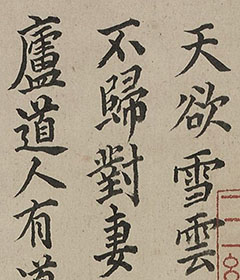 天欲雪雲
不歸對妻
廬道人有道